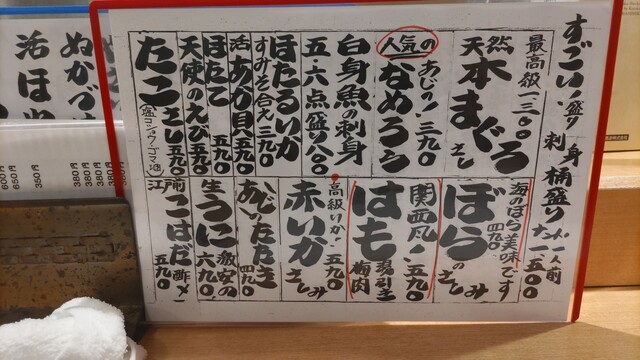 すごい!盛り 刺身桶盛り 一人前 一五〇〇
最高級 一、三〇〇
天然 本まぐろ さし
人気の
あじの! 三九〇
なめろう
白身魚の刺身
五・六点盛り 八〇〇
ほたるいか
すみそ合え 三九〇
活 あか貝 五九〇
ほたて 五九〇
天使のえび 五九〇
たこさし 五九〇
(塩コショウ・ゴマ油)
海のぼら美味です
四九〇
ぼらのさしみ
関西風! 五九〇
はも 梅肉
高級いか! 五九〇
赤いか さしみ
あじのたたき 四九〇
生うに 激安の 六九〇
江戸前 こはだ酢〆 五九〇
ぬかづけ
活ほ
650円
600円
350円
380円
380円
380円
350円